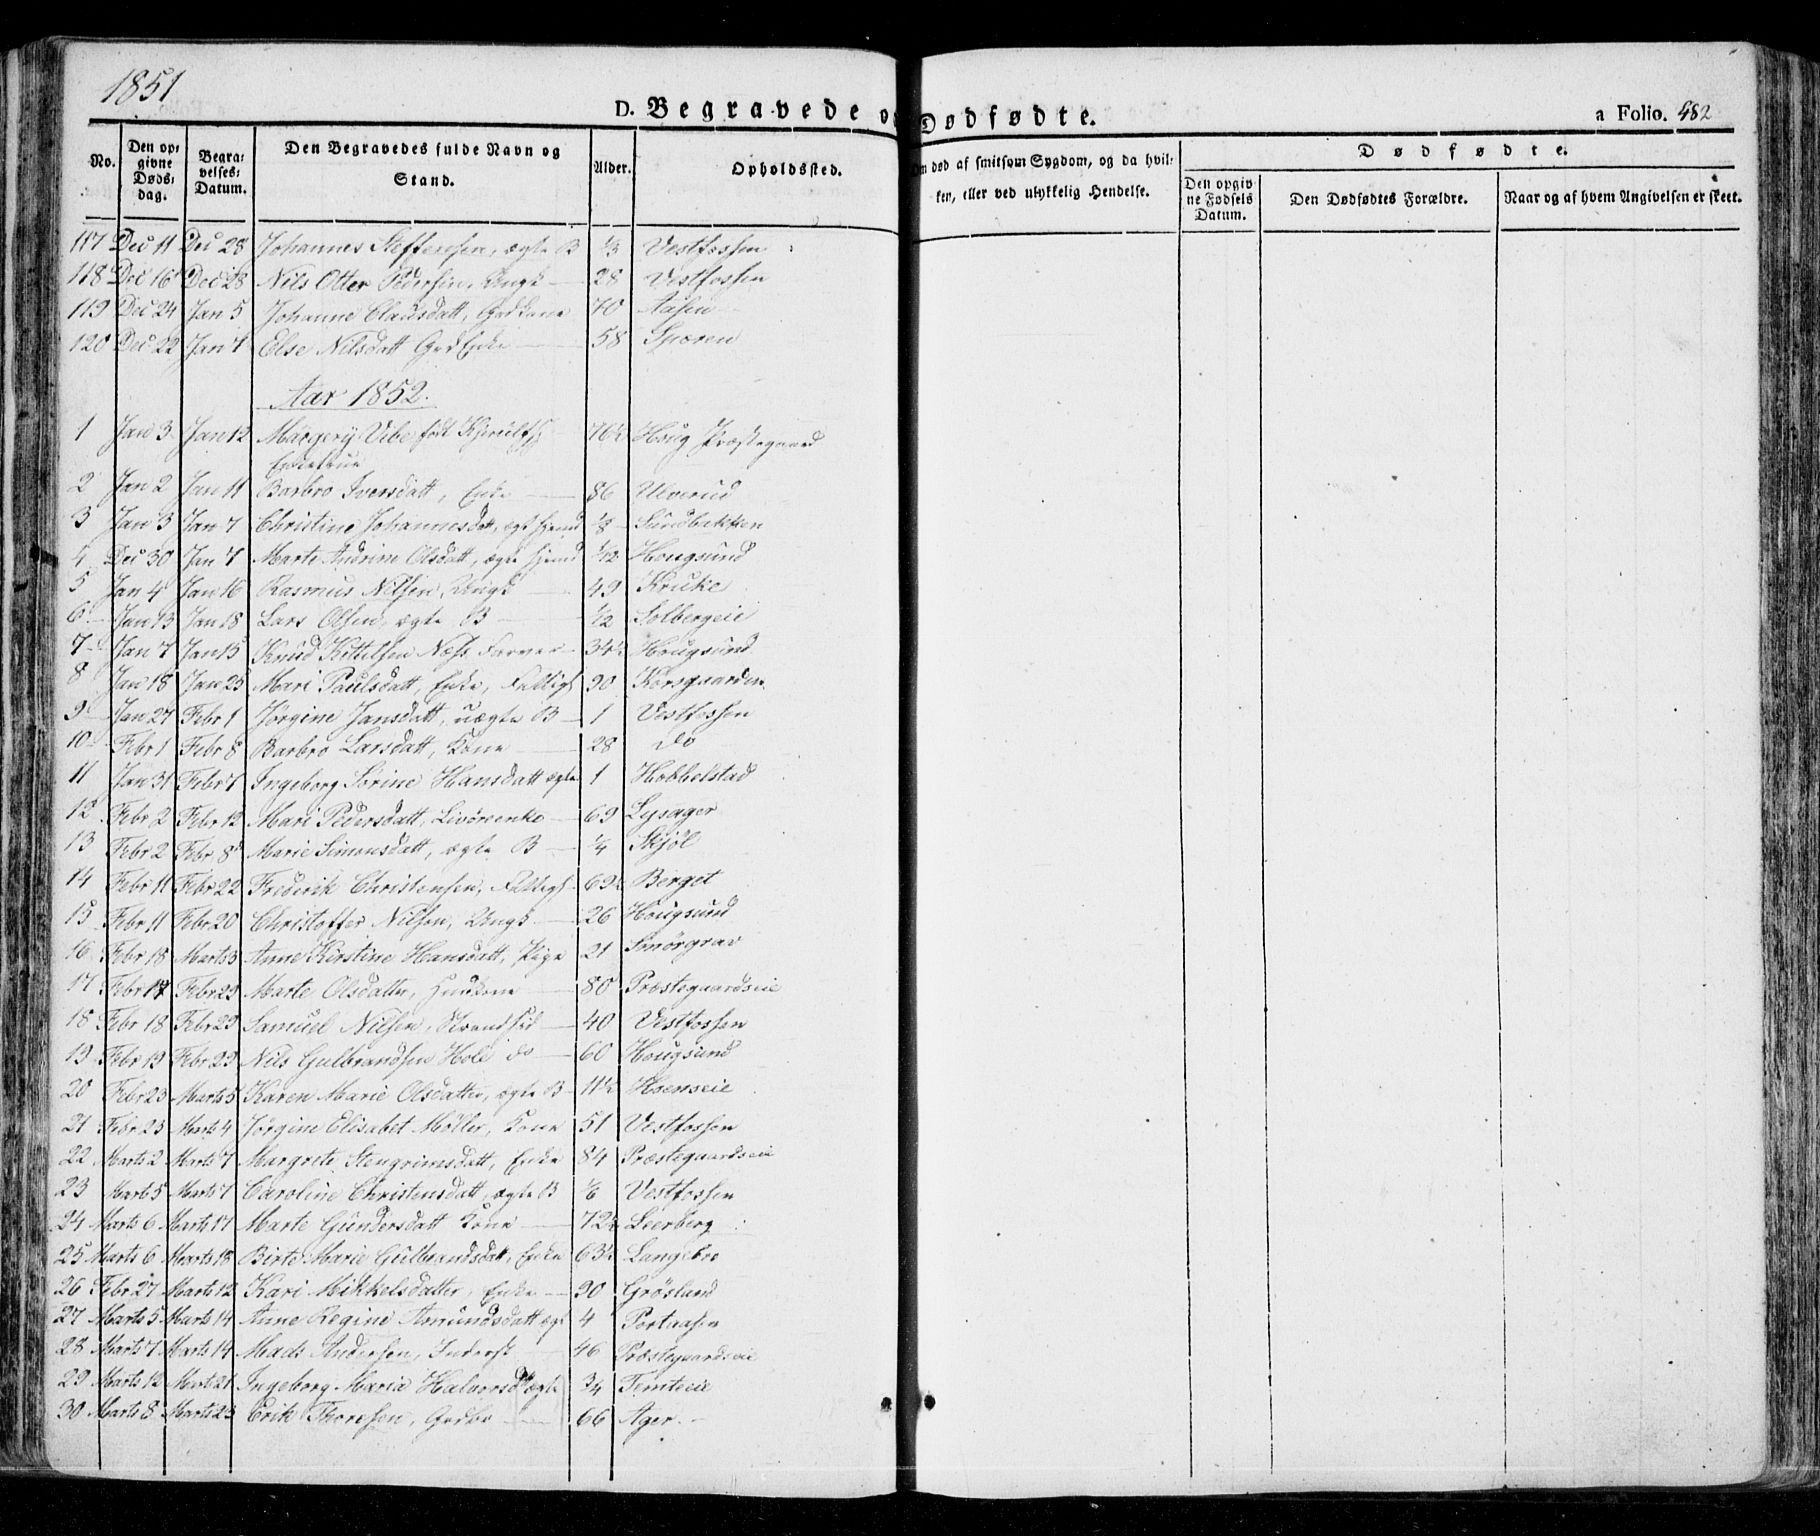 1851
D. Begravede og Dødfødte.
a Folio. 482
No.
Den opgivne Dødsdag.
Begravelses-Datum.
Den Begravedes fulde Navn og Stand.
Alder.
Opholdssted.
Om død af smitsom Sygdom, og da hvilken, eller ved ulykkelig Hendelse.
Dødfødte.
Den opgivne Fødsels Datum.
Den Dødfødtes Forældre.
Naar og af hvem Angivelsen er skeet.
117 Dec 11 Dec 28 Johannes Steffensen, ægte B 1/3 Vestfossen
118 Dec 16 Dec 28 Nils Otter Pedersen, Ungk 28 Vestfossen
119 Dec 24 Jan 5 Johanne Clausdatt, Grdkone 70 Aasen
120 Dec 22 Jan 7 Else Nilsdatt GrdEnke 58 Sparen
Aar 1852.
1 Jan 3 Jan 12 Margery Vibe født Kjerulff 76½ Houg Præstegaard
Enkefrue
2 Jan 2 Jan 11 Barbro Iversdatt, Enke 86 Ulverud
3 Jan 3 Jan 7 Christine Johannesdatt, ægt 1/8 Sundbakken
4 Dec 30 Jan 7 Marte Andrine Olsdatt, ægte 1/12 Hougsund
5 Jan 4 Jan 16 Rasmus Nilsen, Ungk 49 Kruke
6 Jan 13 Jan 18 Lars Olsen, ægte B 1/2 Solbergeie
7 Jan 7 Jan 15 Knud Kittilsen Næss Farver 34½ Hougsund
8 Jan 18 Jan 25 Mari Paulsdatt, Enke, Fattigl 90 Korsgaarden
9 Jan 27 Febr 1 Jørgine Jansdatt, uægte B 1 Vestfossen
10 Febr 1 Febr 8 Barbro Larsdatt, Kone 28 do
11 Jan 31 Febr 7 Ingeborg Sørine Hansdatt ægte 1 Hobbelstad
12 Febr 2 Febr 12 Mari Pedersdatt, Livørenke 69 Lysager
13 Febr 2 Febr 8 Marie Simensdatt, ægte B 1/4 Skjøl
14 Febr 11 Febr 22 Frederik Christensen, Fattigl 69½ Berget
15 Febr 11 Febr 20 Christoffer Nilsen, Ungk 26 Hougsund
16 Febr 18 Marts 3 Anne Kirstine Hansdatt, Pige 21 Smørgrav
17 Febr 17 Febr 29 Marte Olsdatter, Huuskone 80 Præstegaardseie
18 Febr 18 Febr 29 Samuel Nilsen, Strandsid 40 Vestfossen
19 Febr 19 Febr 29 Nils Gulbrandsen Hole do 60 Hougsund
20 Febr 23 Marts 5 Karen Marie Olsdatter, ægte B 11½ Hoenseie
21 Febr 25 Marts 4 Jørgine Elisabet Møller, Kone 51 Vestfossen
22 Marts 2 Marts 7 Margrete Stengrimsdatt, Enke 84 Præstegaardseie
23 Marts 5 Marts 7 Caroline Christensdatt, ægte B 1/6 Vestfossen
24 Marts 6 Marts 17 Marte Gundersdatt Kone 72½ Leerberg
25 Marts 6 Marts 18 Birte Marie Gulbrandsdatt, Enke 63½ Langebro
26 Febr 27 Marts 12 Kari Mikkelsdatter, Enke 90 Grøsland
27 Marts 5 Marts 14 Anne Regine Amundsdatt ægt 4 Portaasen
28 Marts 7 Marts 14 Mads Andersen, Inderst 46 Præstegaardseie
29 Marts 12 Marts 21 Ingeborg Maria Halvorsd ægte 3/4 Temteeie
30 Marts 8 Marts 23 Erik Thoresen, Grdbr 66 Ager